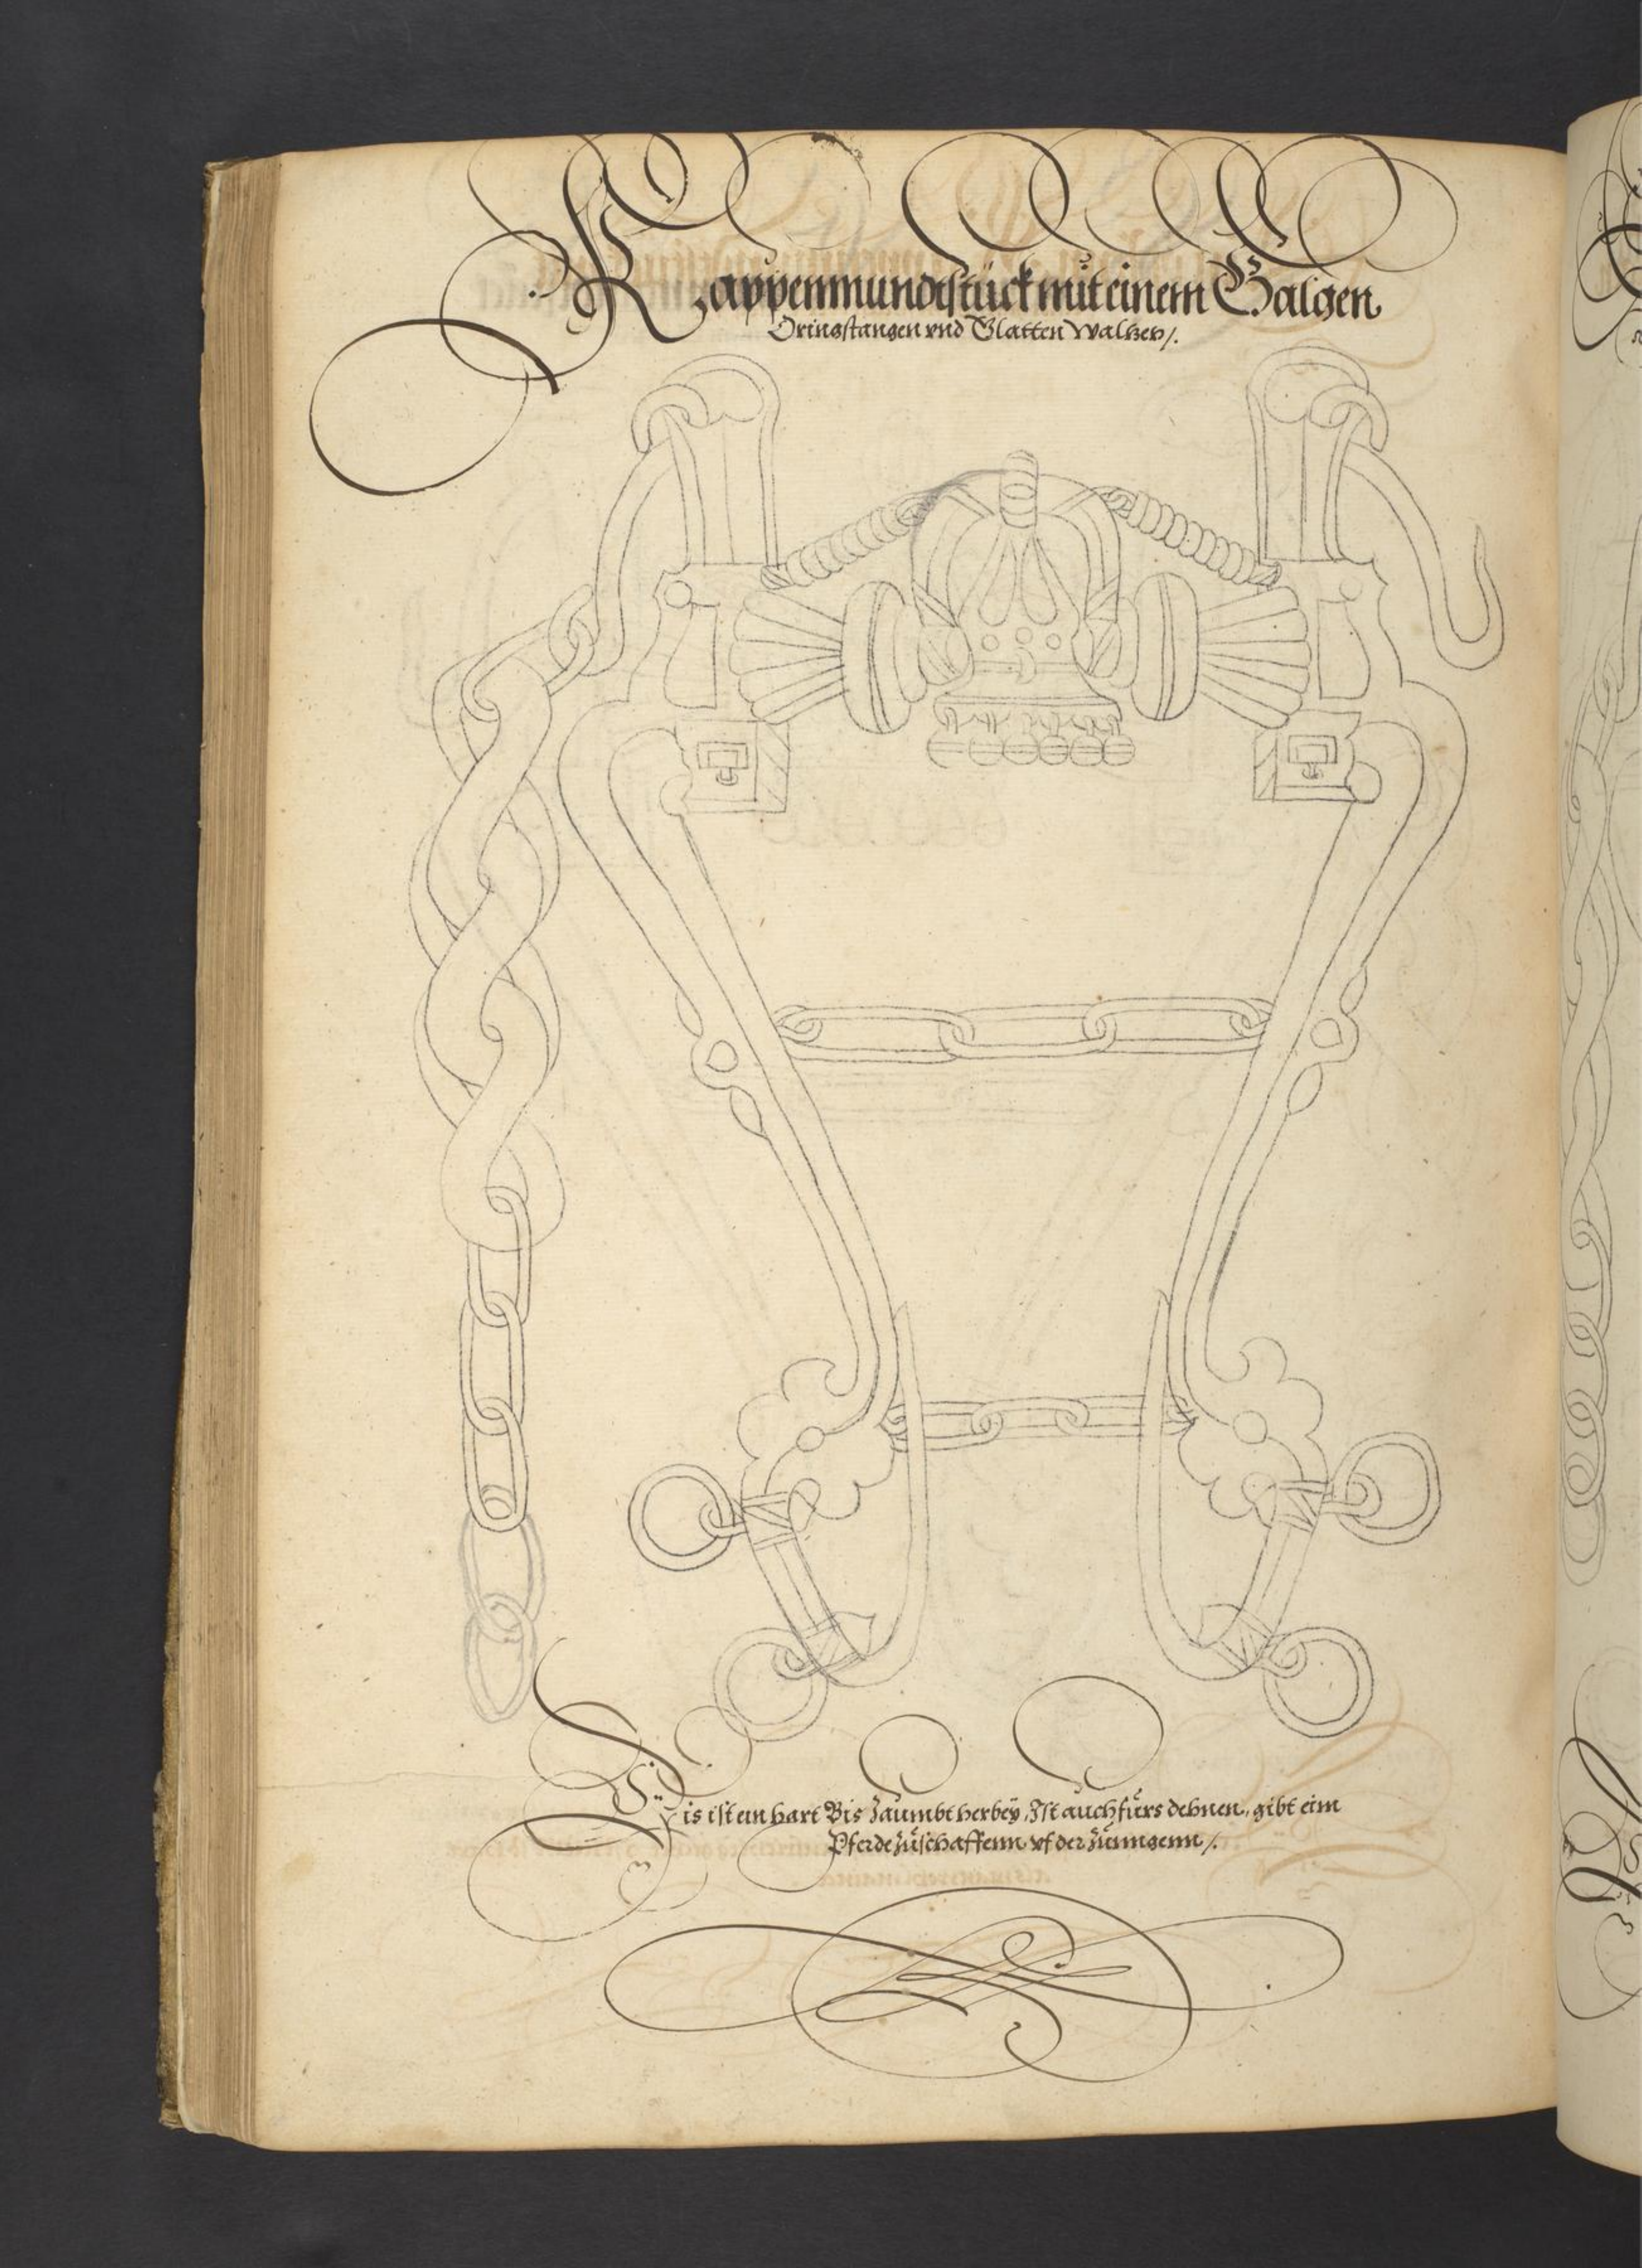 Kappenmundtstück mit einem Galgen
Oringstangen vnd Glatten Waltzen /.
Dis ist ein hart Bis Zaümbt herbeÿ, Ist auch fürs dehnen, gibt eim
Pferde züschaffenn vf der züenngenn /.